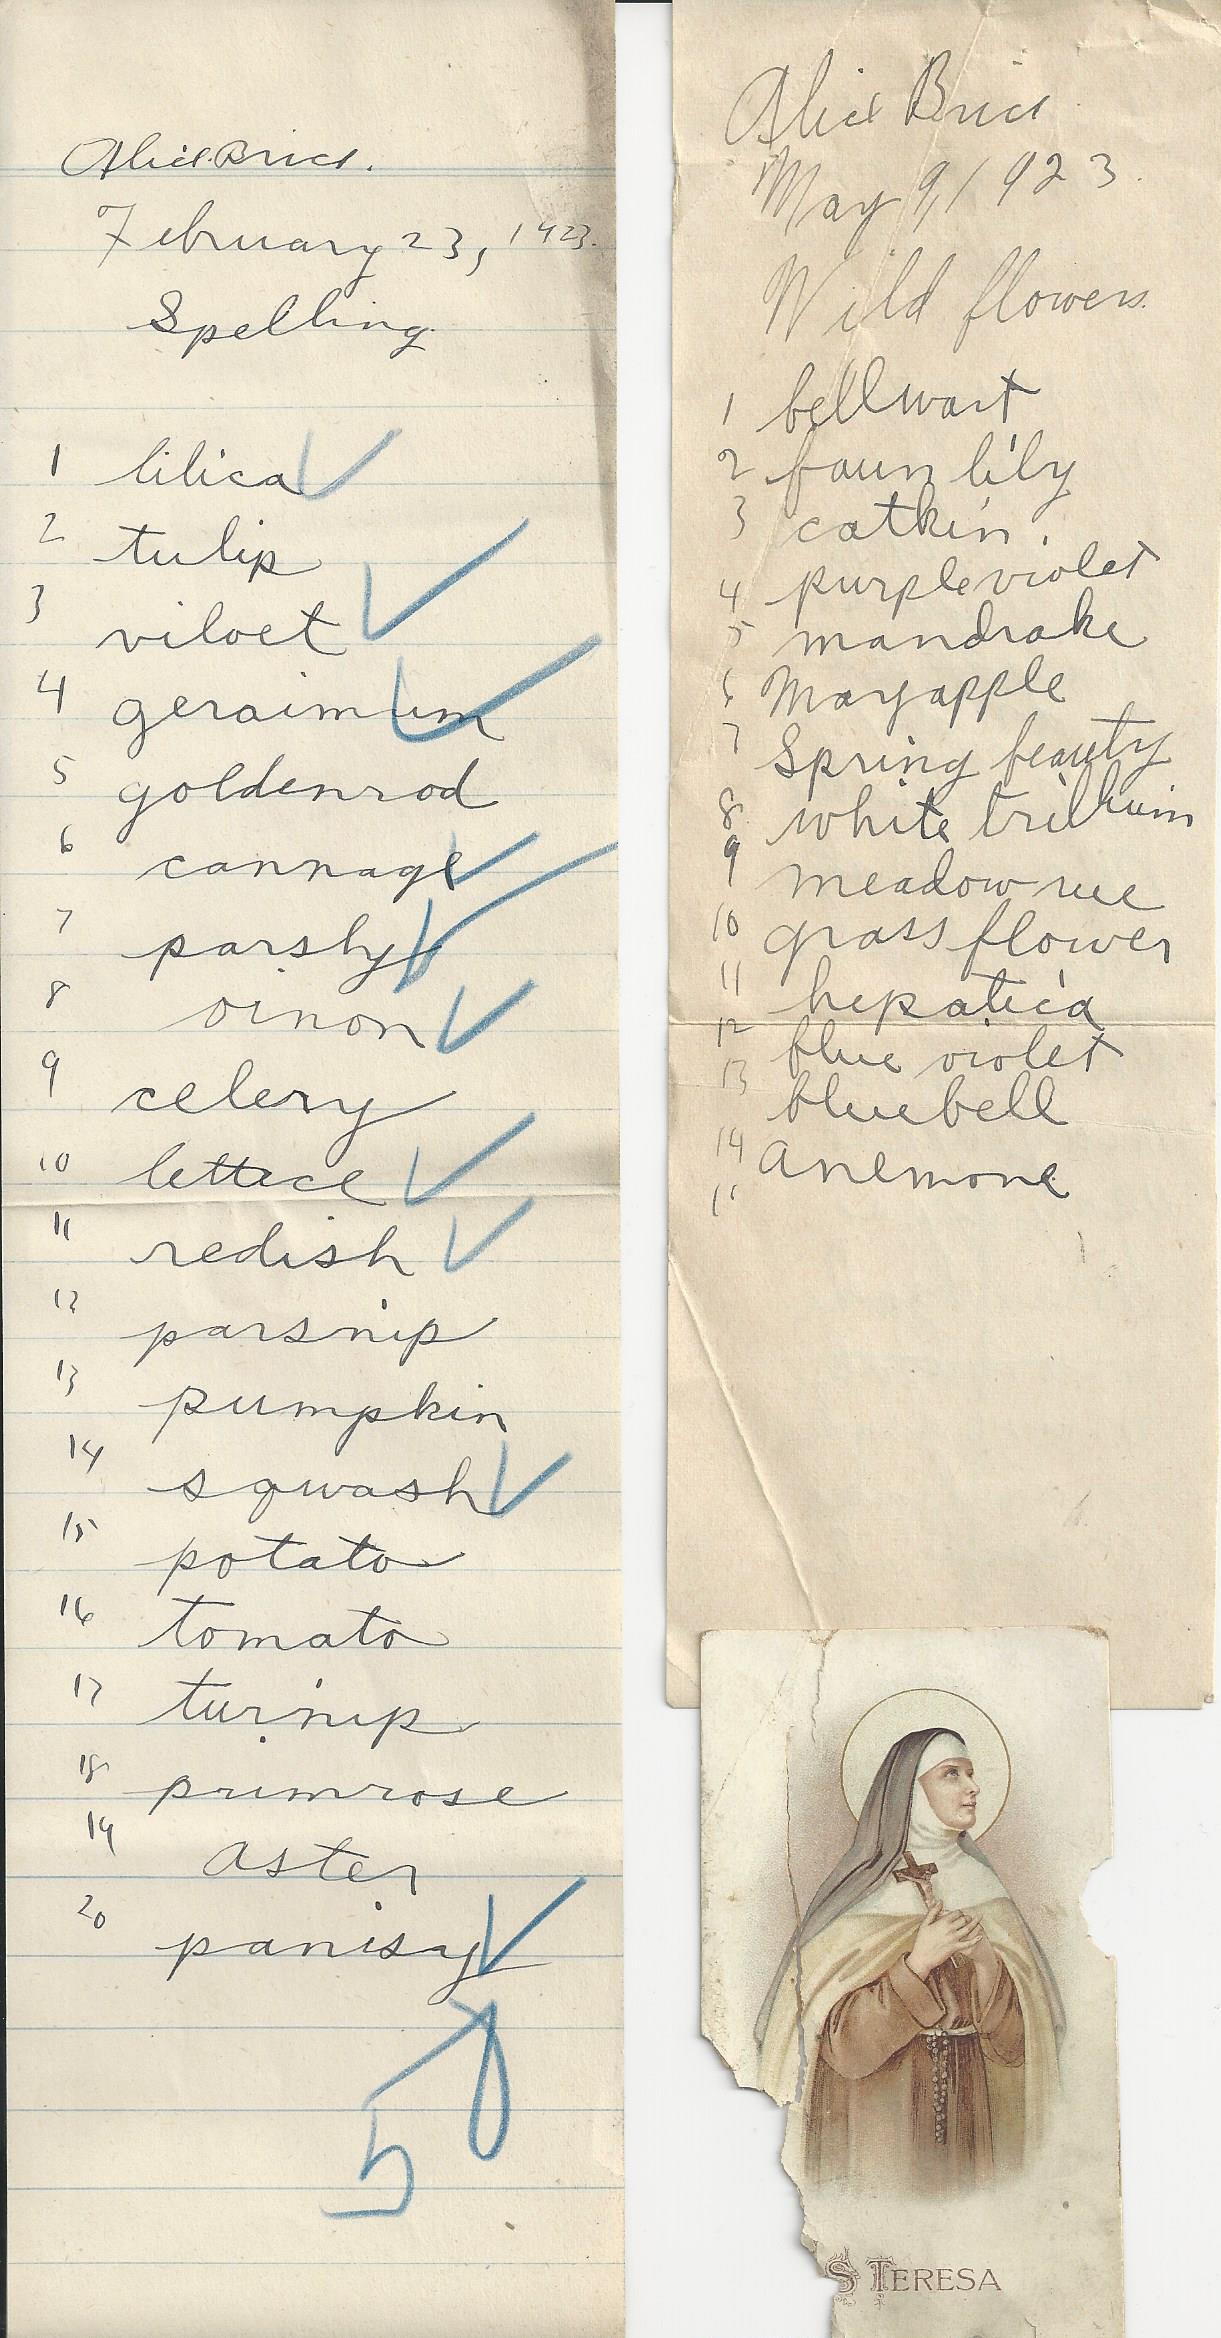 Alice Brice.
February 23, 1923.
Spelling
1 lilica
2 tulip
3 viloet
4 geraimum
5 goldenrod
6 cannage
7 parsly
8 oinon
9 celery
10 lettace
11 redish
12 parsnip
13 pumpkin
14 sqwash
15 potato
16 tomato
17 turnip
18 primrose
19 aster
20 panisy
50
Alice Brice
May 9, 1923.
Wild flowers.
1 bellwart
2 faun lily
3 catkin.
4 purple violet
5 mandrake
6 Mayapple
7 Spring beauty
8 white trillium
9 meadow rue
10 grass flower
11 hepatica
12 blue violet
13 bluebell
14 anemone
S TERESA